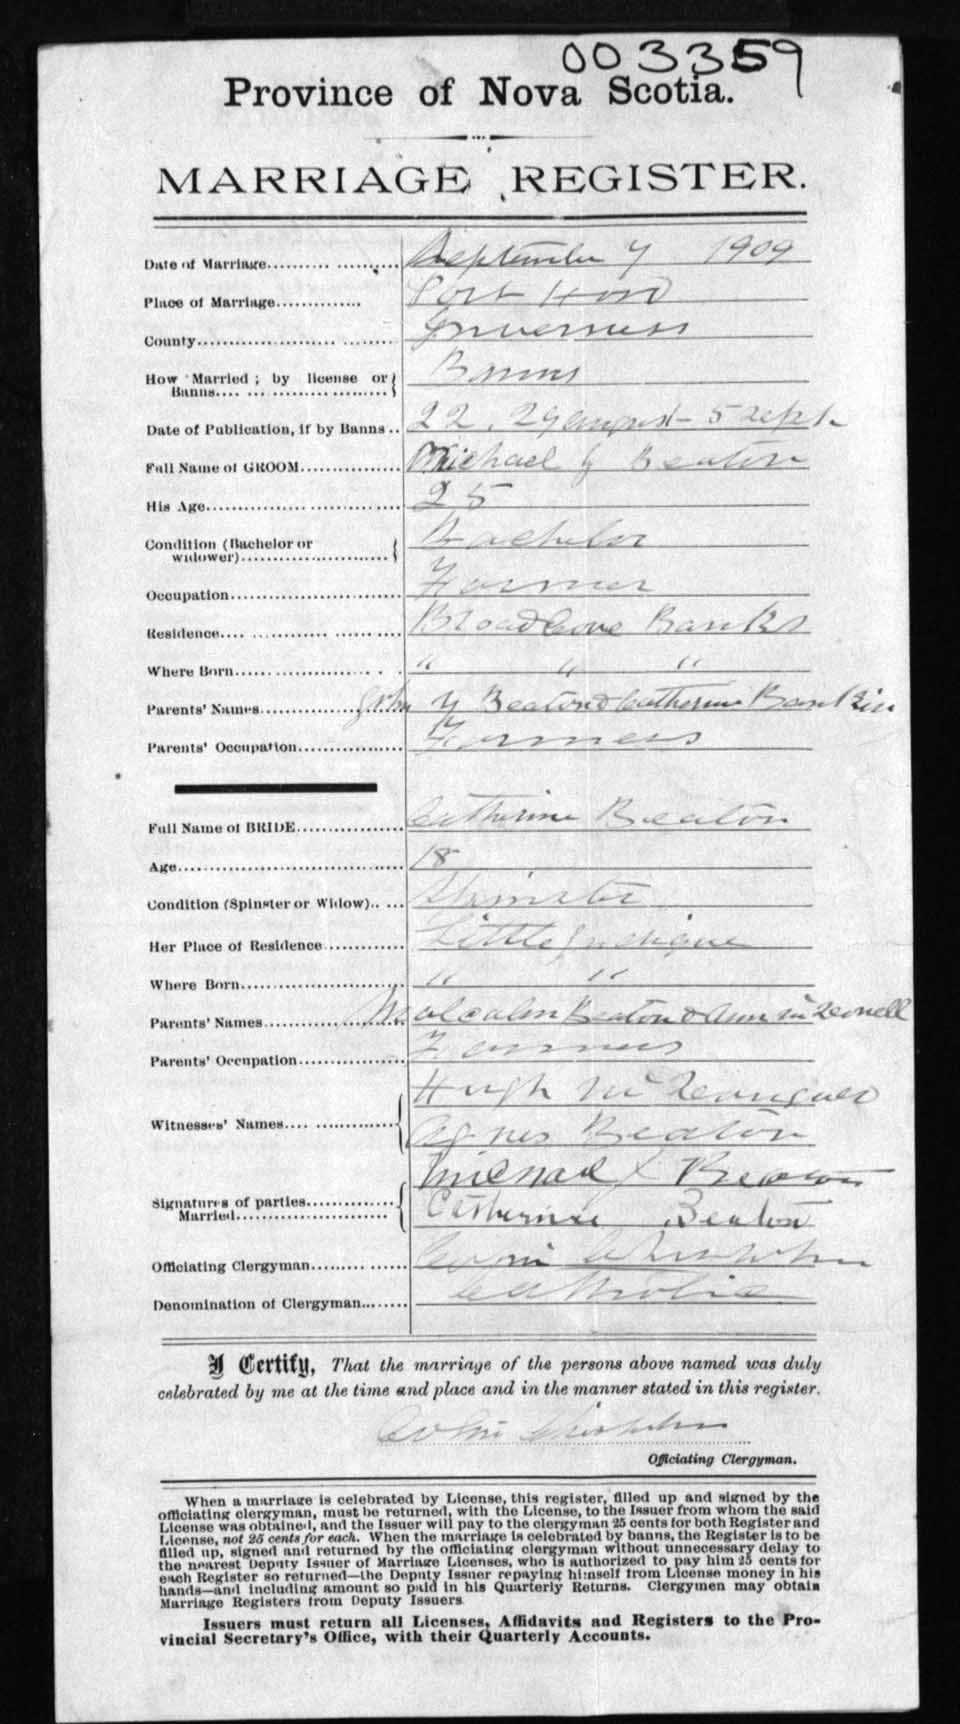 003359
Province of Nova Scotia.
MARRIAGE REGISTER.
Date of Marriage.................... September 7 1909
Place of Marriage.............. Port Hood
County.................................. Inverness
How Married; by license or Banns.................................. Banns
Date of Publication, if by Banns.. 22, 29 august - 5 Sept.
Full Name of GROOM................ Michael J Beaton
His Age.................................. 25
Condition (Bachelor or widower).......................... Bachelor
Occupation.............................. Farmer
Residence.... ........................ Broad Cove Banks
Where Born............................ " " "
Parents' Names...................... John Y Beaton & Catherine Rankin
Parents' Occupation................ Farmers
Full Name of BRIDE................ Catherine Beaton
Age........................................ 18
Condition (Spinster or Widow).. ... Spinster
Her Place of Residence............ Little Judique
Where Born............................ " "
Parents' Names...................... Malcolm Beaton & Ann
Parents' Occupation................ Farmers
Witnesses' Names.... .............. Hugh
Agnes Beaton
Signatures of parties Married.......................... Michael J Beaton
Catherine Beaton
Officiating Clergyman.............. Colin Chisholm
Denomination of Clergyman....... Catholic
I Certify, That the marriage of the persons above named was duly
celebrated by me at the time and place and in the manner stated in this register.
Colin Chisholm
Officiating Clergyman.
When a marriage is celebrated by License, this register, filled up and signed by the
officiating clergyman, must be returned, with the License, to the Issuer from whom the said
License was obtained, and the Issuer will pay to the clergyman 25 cents for both Register and
License, not 25 cents for each. When the marriage is celebrated by banns, the Register is to be
filled up, signed and returned by the officiating clergyman without unnecessary delay to
the nearest Deputy Issuer of Marriage Licenses, who is authorized to pay him 25 cents for
each Register so returned—the Deputy Issuer repaying himself from License money in his
hands—and including amount so paid in his Quarterly Returns. Clergymen may obtain
Marriage Registers from Deputy Issuers
Issuers must return all Licenses, Affidavits and Registers to the Pro-
vincial Secretary's Office, with their Quarterly Accounts.